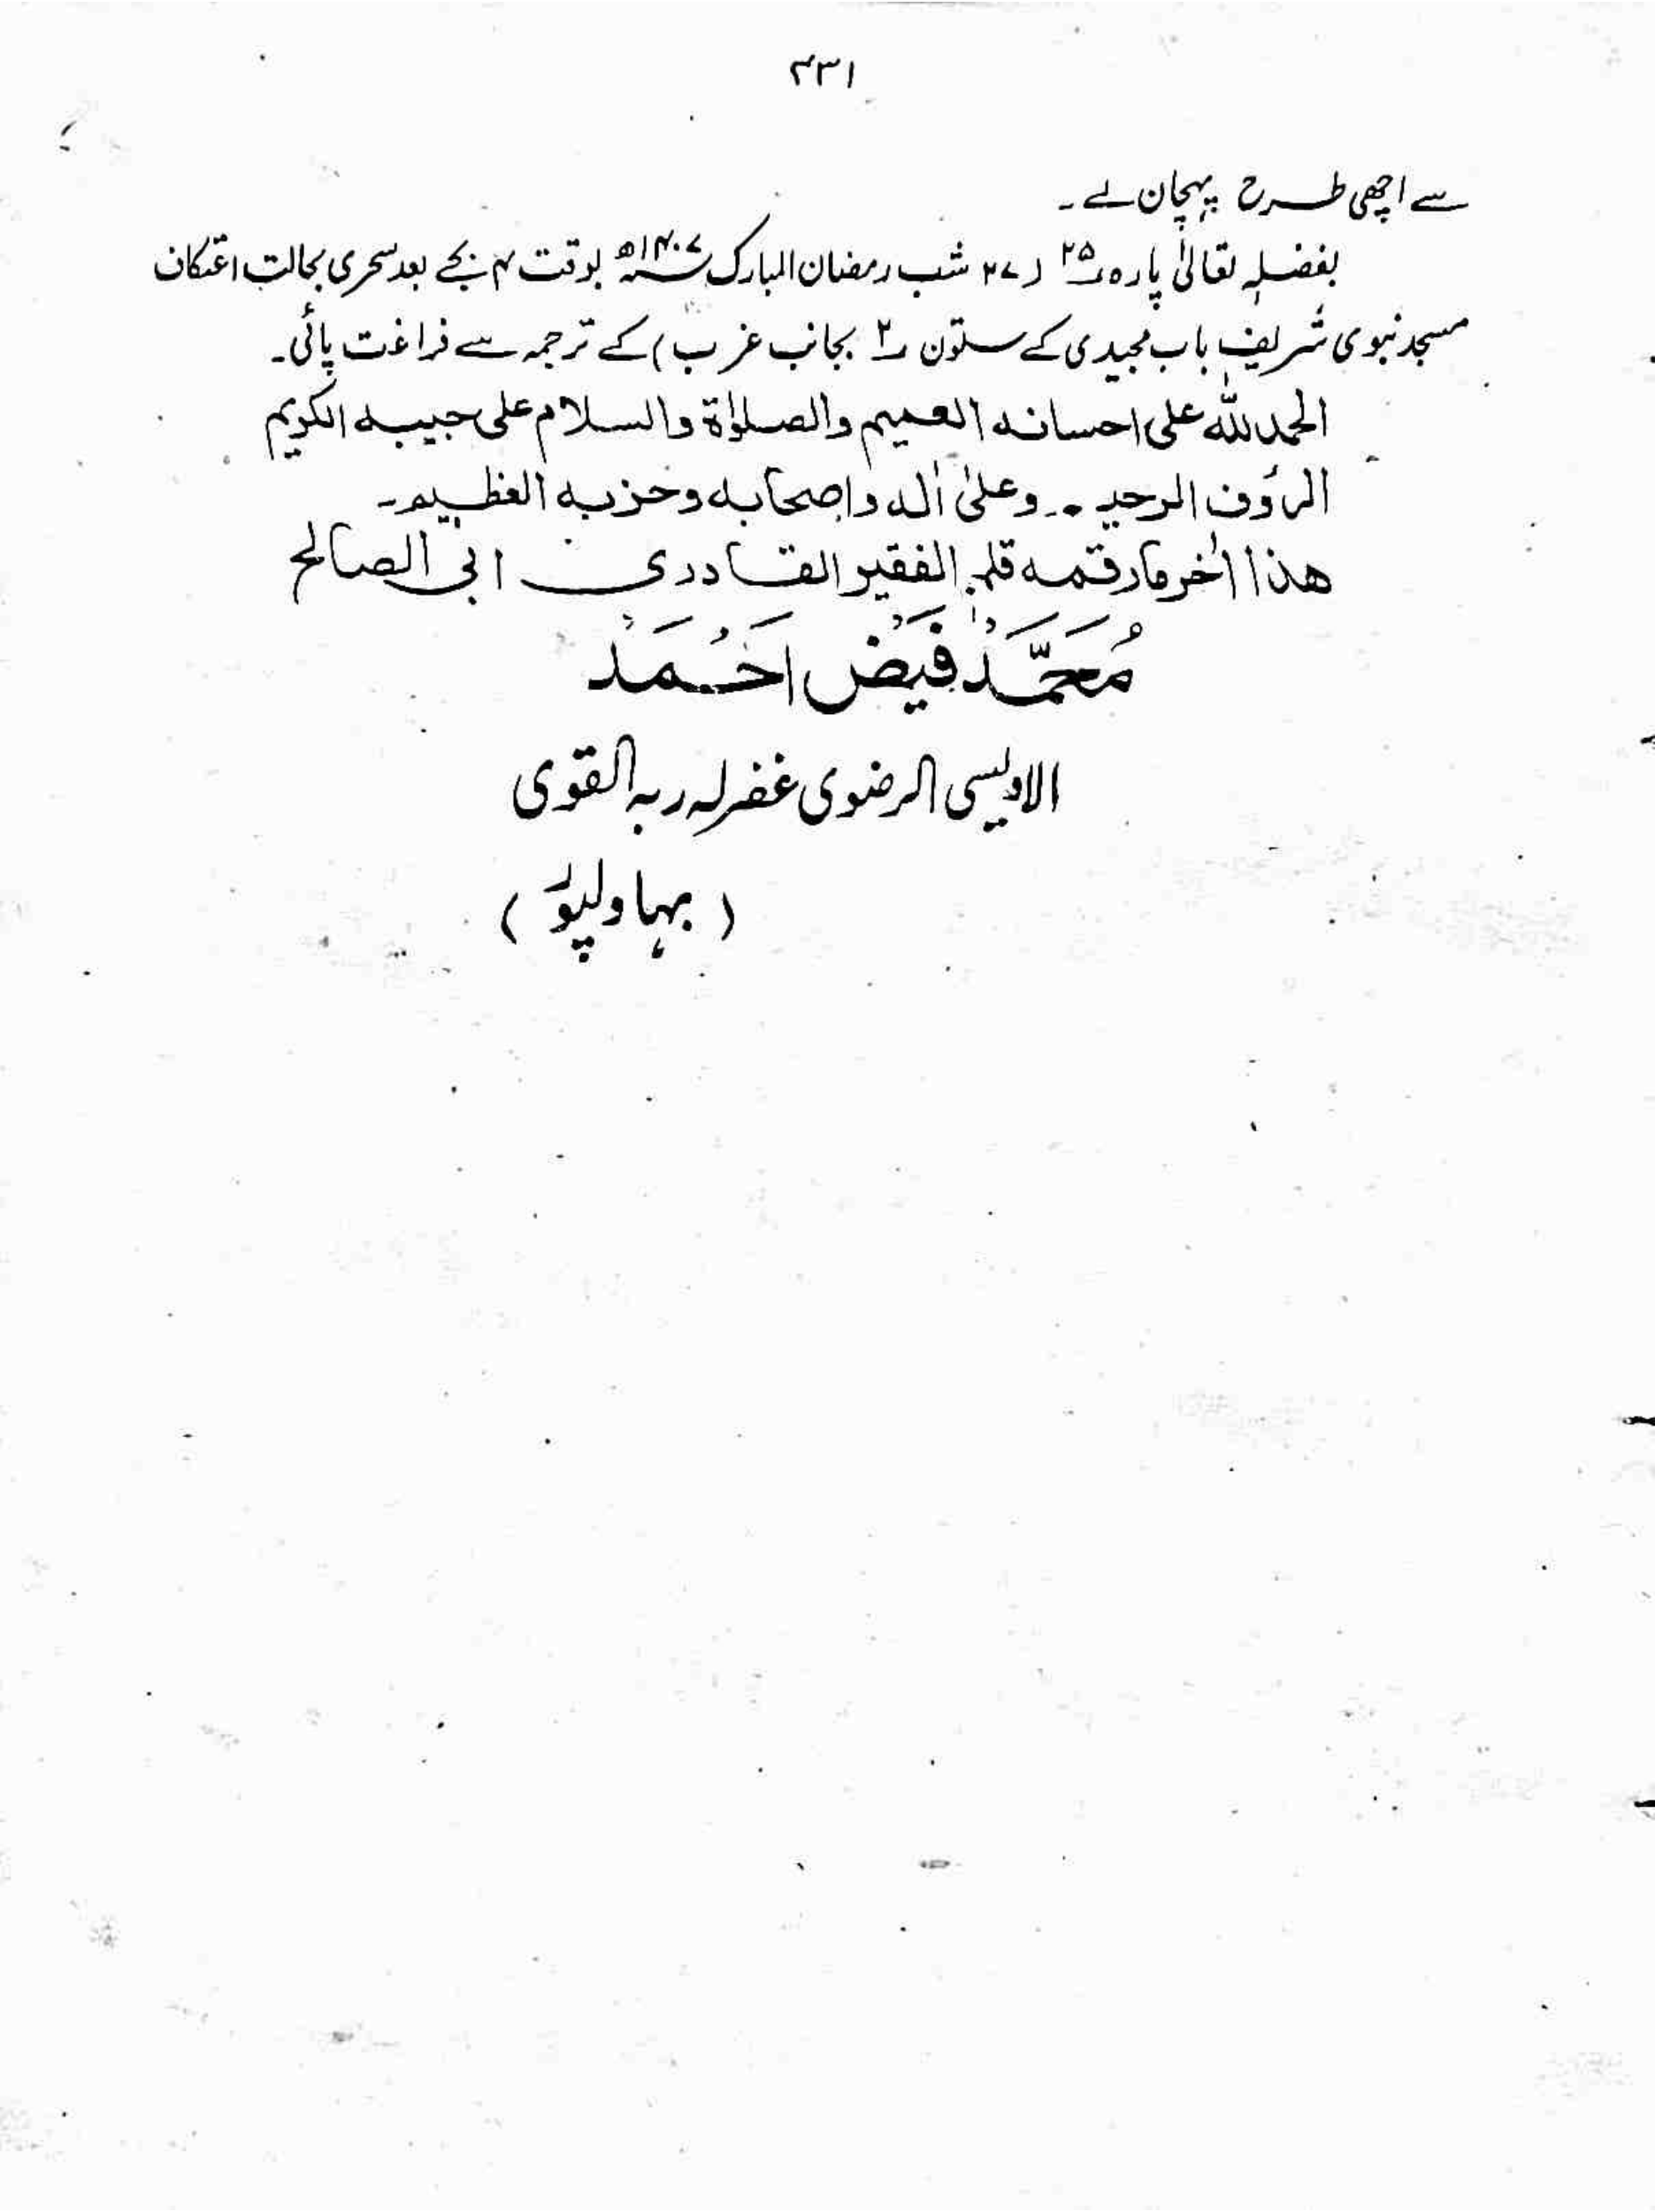 ۴۳۱
سے اچھی طرح پہچان لے۔
بفضلہٖ تعالیٰ پارہ ۲۵ (۲۷ شب رمضان المبارک ۱۴۰۷ھ بوقت ۴ بجے بعد سحری بحالت اعتکاف
مسجد نبوی شریف باب مجیدی کے ستون ۲ بجانب غرب) کے ترجمہ سے فراغت پائی۔
الحمد للہ علی احسانہ العمیم والصلوٰۃ والسلام علی حبیبہ الکریم
الرؤف الرحیم۔ وعلیٰ اٰلہ واصحابہ وحزبہ العظیم۔
ھذا اٰخر ما رقمہ قلم الفقیر القادری ابی الصالح
مُحَمَّد فَیض اَحْمَد
الاویسی الرضوی غفرلہ ربہ القوی
(بہاولپور)